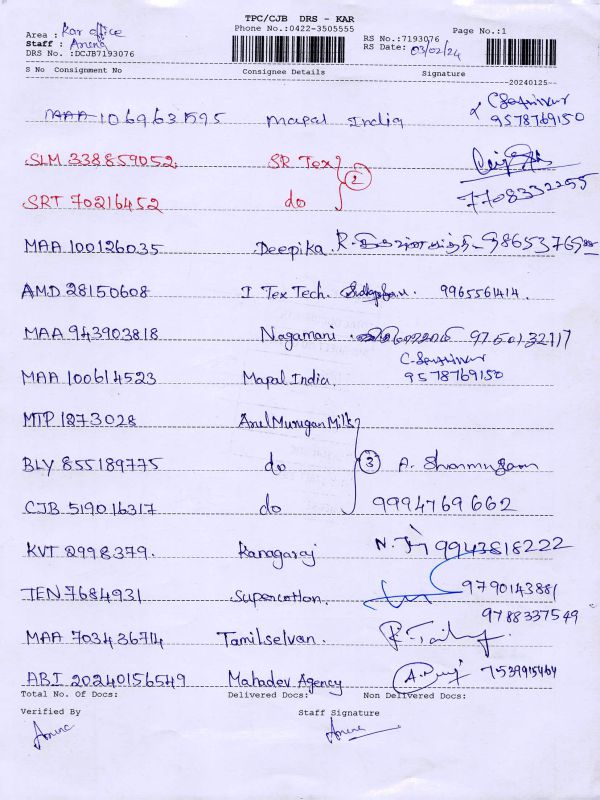 TPC/CJB DRS - KAR
Area : Kar office Phone No.:0422-3505555 RS No.:7193076 Page No.:1
Staff : RS Date: 03/02/24
DRS No. :DCJB7193076
S No Consignment No Consignee Details Signature
20240125
MAA-1069631595 Mapal India C. 9578769150
SLM 338859052 SR Tex
SRT 70216452 do 2 7708332255
MAA 100126035 Deepika R.
AMD 28150608 I Tex Tech. 9965561414.
MAA 943903818 Nagamani. 9750132117
MAA 100614523 Mapal India. C. 9578769150
MTP 1273028 Arul Murugan Milk
BLY 855189775 do 3 A. Shanmugam
CJB 519016317 do 9994769662
KVT 2998379. Kanagaraj 9943818222
TEN 7684931 Supercotton. 9790143881
9788337549
MAA 703436714 Tamilselvan.
ABI 20240156549 Mahadev Agency 7539915464
Total No. Of Docs: Delivered Docs: Non Delivered Docs:
Verified By Staff Signature